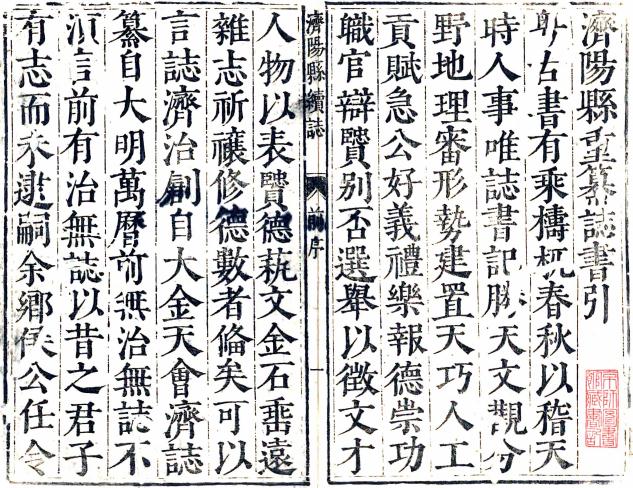 濟陽縣重纂誌書引
聞古書有乘檮杌春秋以稽天
時人事唯誌書記勝天文觀分
野地理審形勢建置天巧人工
貢賦急公好義禮樂報德崇功
職官辯賢別否選舉以徵文才
濟陽縣續誌
前序
一
人物以表賢德藝文金石垂遠
雜志祈禳修德數者備矣可以
言誌濟治創自大金天會濟誌
纂自大明萬曆前無治無誌不
須言前有治無誌以昔之君子
有志而未逮嗣余鄉侯公任令